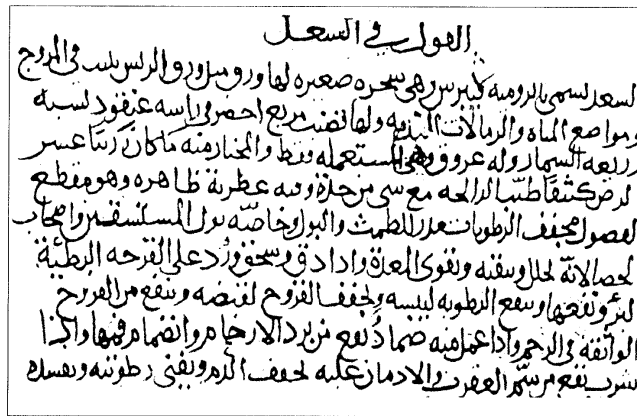 القول في السعد
السعد يسمى بالرومية وهي شجرة صغيرة لها ورق مثل ورق الراس ينبت في المروج
ومواضع الماء والرمالات الندية ولها قضيب مربع اخضر في راسه عنقود لسبه
زريعة السمار وله عروق وهي المستعملة فقط والمختار منه ما كان رزينا عسر
الرض كثيفا طيب الرائحة مع شي من حدة وفيه عطرية ظاهرة وهو مقطع
لفصول مجفف الرطوبات مدر للطمث والبول وخاصة بول المستسقين واصحاب
الحصا لانه يحلل وينقيه ويقوي المعدة واذا دق وسحق وذر على القرحة البطئة
البرؤ نفعها وينفع الرطوبة ليبسه ويجفف القروح لقبضه وينفع من القروح
الواقعة في الرحم واذا عمل منه ضماد نفع من برد الارحام وانضمام فمها واذا
شرب نفع من سم العقرب والادمان عليه يجفف الدم ويفني رطوبته ويفسده